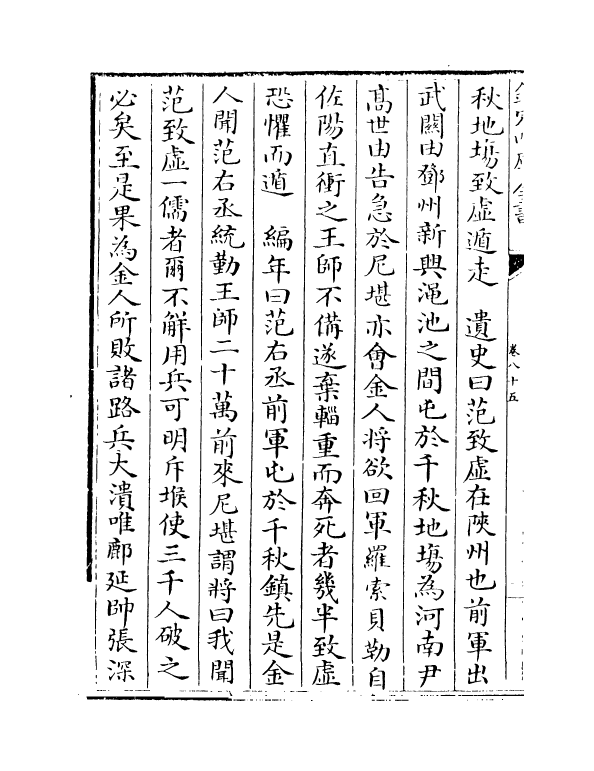 卷八十五
秋地塲致虚遁走　遺史曰范致虚在陜州也前軍出
武闗由鄧州新興澠池之間屯於千秋地塲為河南尹
髙世由告急於尼堪亦會金人將欲回軍羅索貝勒自
佐陽直衝之王師不備遂棄輜重而奔死者幾半致虚
恐懼而遁　編年曰范右丞前軍屯於千秋鎮先是金
人聞范右丞統勤王師二十萬前來尼堪謂將曰我聞
范致虚一儒者爾不觧用兵可明斥堠使三千人破之
必矣至是果為金人所敗諸路兵大潰唯鄜延帥張深